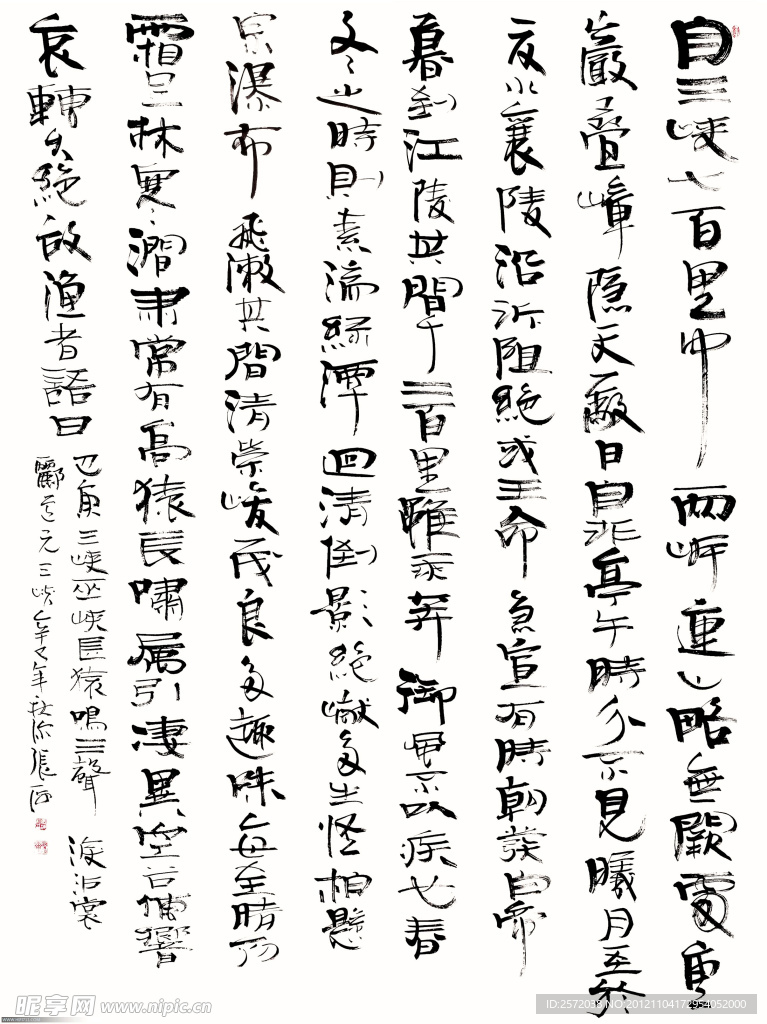 自三峽七百里中兩岸連山略無闕處重
巖疊嶂隱天蔽日自非亭午時分不見曦月至於
夏水襄陵沿泝阻絕或王命急宣有時朝發白帝
暮到江陵其間千二百里雖乘奔御風不以疾也春
冬之時則素湍綠潭迴清倒影絕巘多生怪柏懸
泉瀑布飛漱其間清榮峻茂良多趣味每至晴初
霜旦林寒澗肅常有高猿長嘯屬引淒異空谷傳響
哀轉久絕故漁者語曰
巴東三峽巫峽長猿鳴三聲淚沾裳
酈道元三峽辛卯年秋張
昵享网 www.nipic.cn
ID:2572038 NO:20121104172954052000